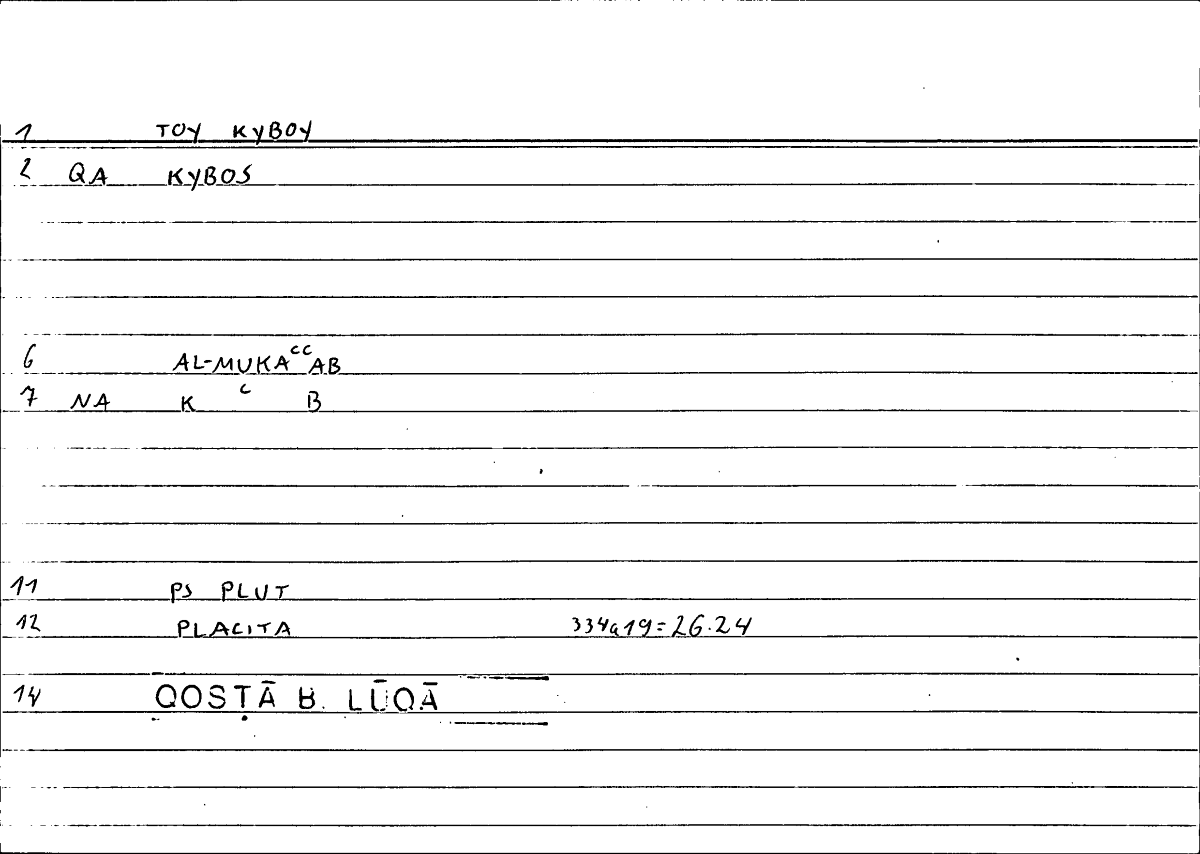 1 TOY KYBOY
2 QA KYBOS
6 AL-MUKAᶜᶜAB
7 NA K ᶜ B
11 PS PLUT
12 PLACITA 334a19=26.24
14 QOSṬĀ B. LŪQĀ